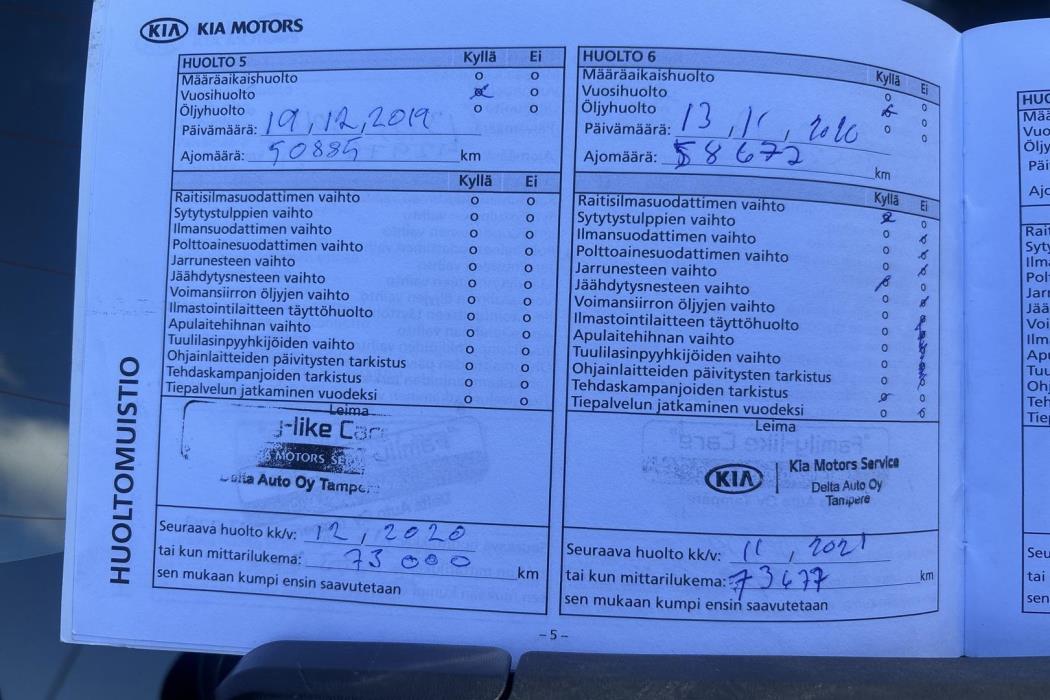 KIA KIA MOTORS
HUOLTOMUISTIO
HUOLTO 5 Kyllä Ei
Määräaikaishuolto o o
Vuosihuolto o
Öljyhuolto o o
Päivämäärä: 19,12,2019
Ajomäärä: 50885 km
Kyllä Ei
Raitisilmasuodattimen vaihto o o
Sytytystulppien vaihto o o
Ilmansuodattimen vaihto o o
Polttoainesuodattimen vaihto o o
Jarrunesteen vaihto o o
Jäähdytysnesteen vaihto o o
Voimansiirron öljyjen vaihto o o
Ilmastointilaitteen täyttöhuolto o o
Apulaitehihnan vaihto o o
Tuulilasinpyyhkijöiden vaihto o o
Ohjainlaitteiden päivitysten tarkistus o o
Tehdaskampanjoiden tarkistus o o
Tiepalvelun jatkaminen vuodeksi o o
Leima
-like Care
MOTORS SE
Delta Auto Oy Tampe
Seuraava huolto kk/v: 12, 2020
tai kun mittarilukema: 73 000 km
sen mukaan kumpi ensin saavutetaan
HUOLTO 6 Kyllä Ei
Määräaikaishuolto o o
Vuosihuolto o
Öljyhuolto o o
Päivämäärä: 13, 11, 2020
Ajomäärä: 58672 km
Kyllä Ei
Raitisilmasuodattimen vaihto o
Sytytystulppien vaihto o
Ilmansuodattimen vaihto o
Polttoainesuodattimen vaihto o
Jarrunesteen vaihto o
Jäähdytysnesteen vaihto o
Voimansiirron öljyjen vaihto o
Ilmastointilaitteen täyttöhuolto o
Apulaitehihnan vaihto o
Tuulilasinpyyhkijöiden vaihto o
Ohjainlaitteiden päivitysten tarkistus o
Tehdaskampanjoiden tarkistus o
Tiepalvelun jatkaminen vuodeksi o
Leima
KIA Kia Motors Service
Delta Auto Oy
Tampere
Seuraava huolto kk/v: 11, 2021
tai kun mittarilukema: km
sen mukaan kumpi ensin saavutetaan
- 5 -